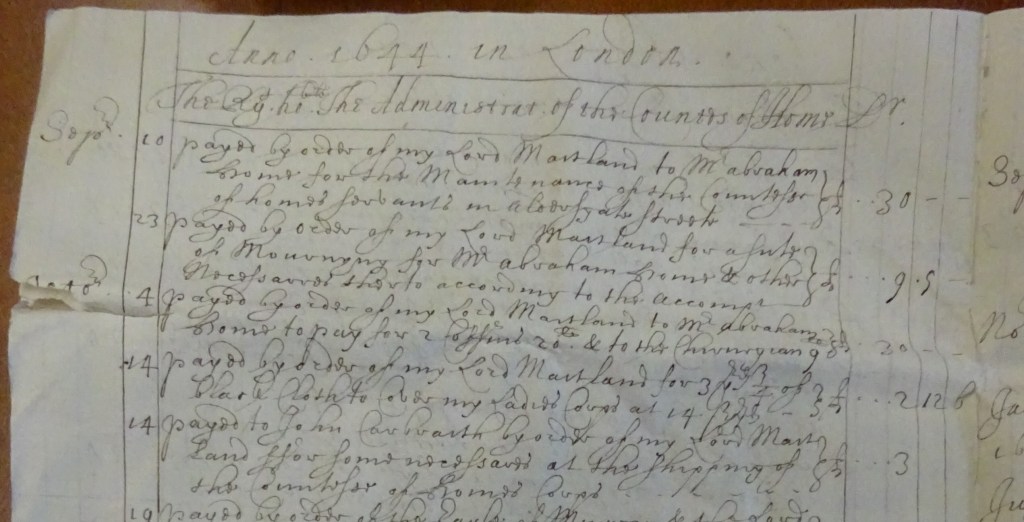 Anno. 1644. in London.
The Rt. ho: The Administrat. of the Countes of Home Dr.
Sepr. 10 payed by order of my Lord Maitland to Mr abraham
home for the Maintenance of the Countesse
of homes servants in Aldersgate Streete £ 30 - -
23 payed by order of my Lord Maitland for a sute
of Mourning for Mr abraham home & other
Necessares therto according to the accompt £ 9 . 5 -
4 payed by order of my Lord Maitland to Mr abraham
home to pay for 2 Coffins 20 & to the Chirurgian £ 30 - -
14 payed by order of my Lord Maitland for 3 of
black Cloth to cover my Ladies Corps at 14 £ 2 12 6
14 payed to John by order of my Lord Mait
land ffor some necessares at the Shipping of
the Countesse of homes Corps £ 3
19 payed by order of the